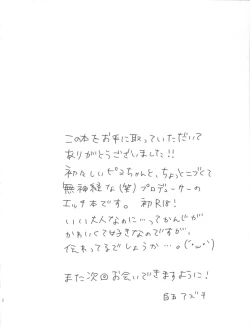 この本をお手に取っていただいて
ありがとうございました!!
初々しいピュアちゃんと、ちょっとこづくて
無神経な(笑)プロデューサーの
エッチ本です。 初R18!
いい大人なのに…ってかんじが
かわいくて好きなのですが、
伝わってるでしょうか…。(´・ω・`)
また次回お会いできますように!